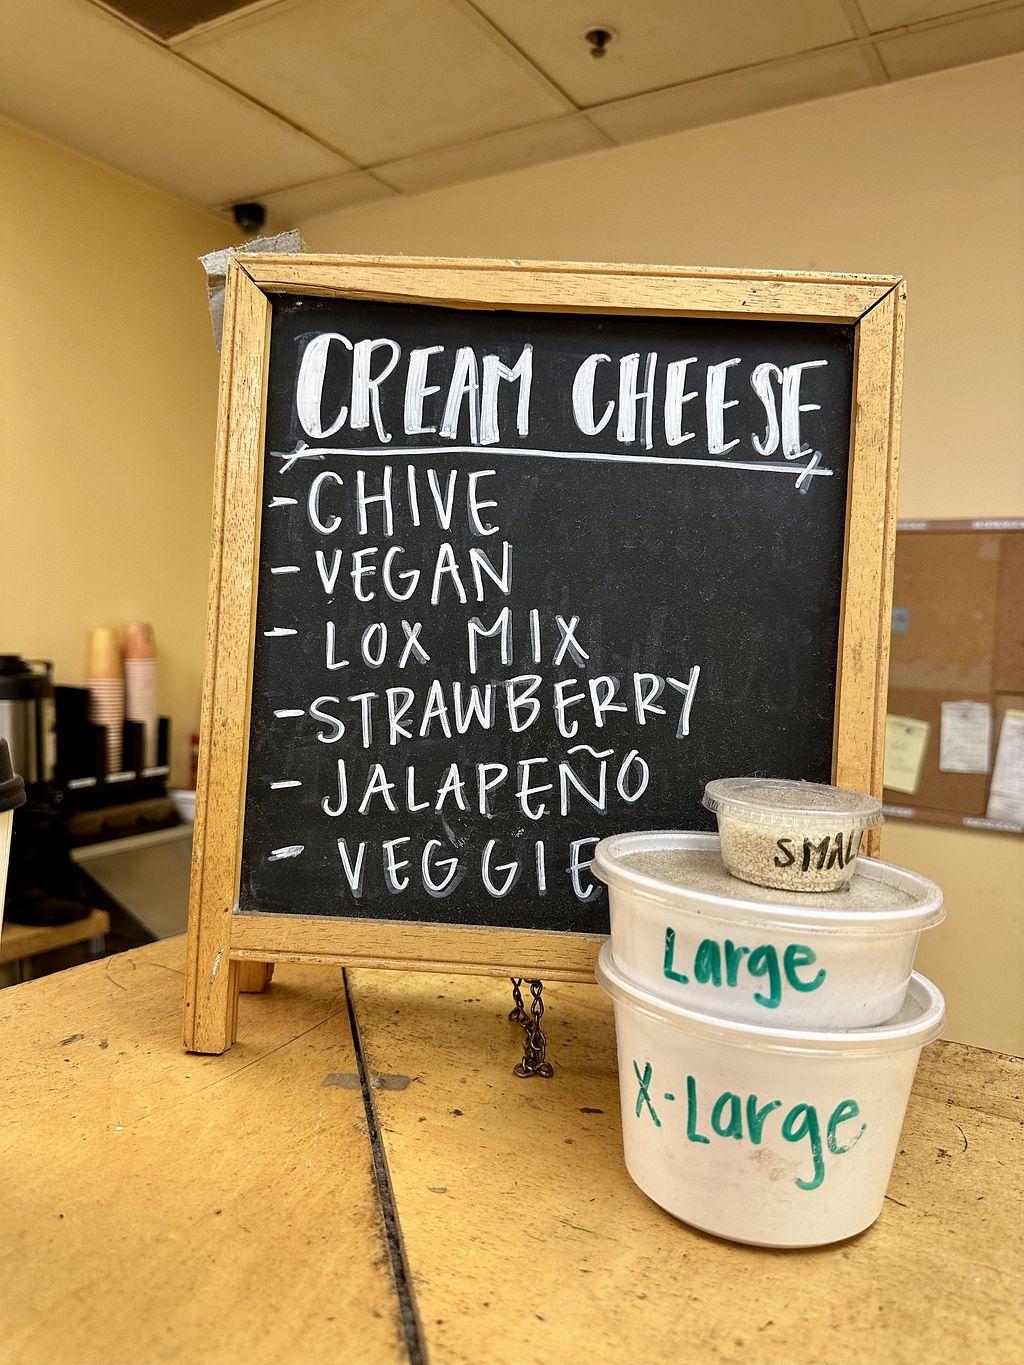 CREAM CHEESE
- CHIVE
- VEGAN
- LOX MIX
- STRAWBERRY
- JALAPEÑO
- VEGGIE
SMAL
Large
X-Large